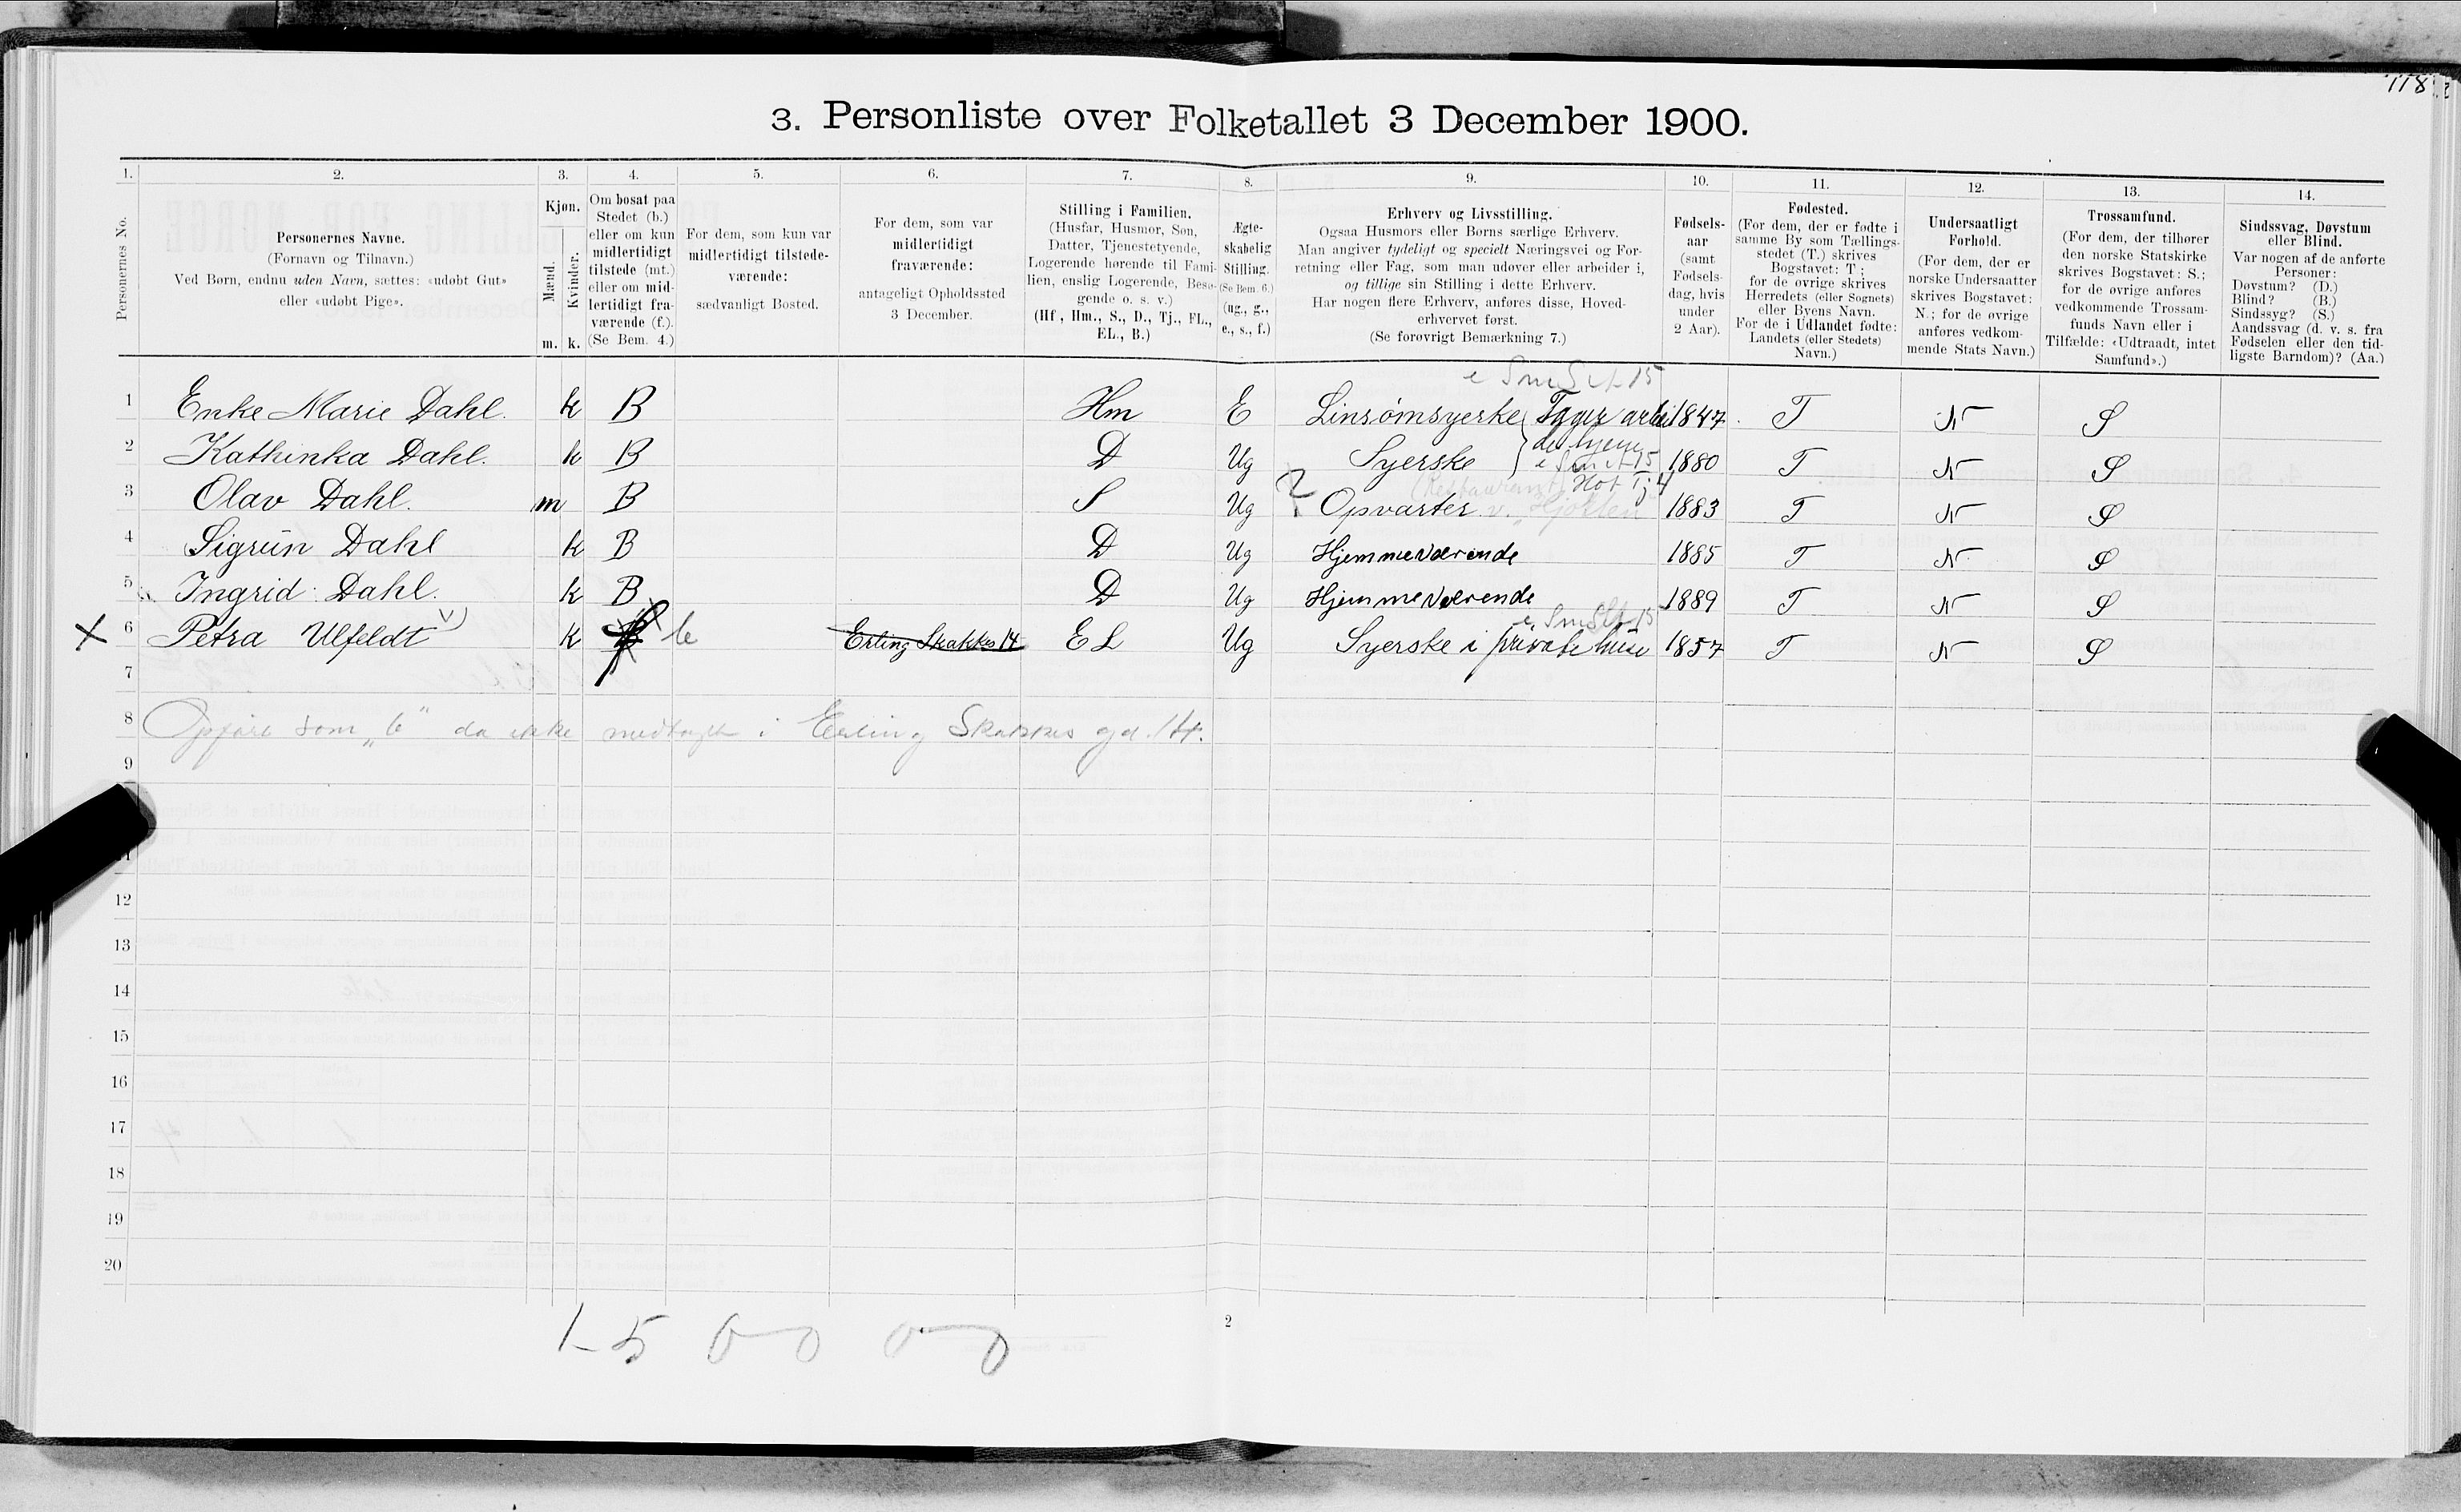 118
3. Personliste over Folketallet 3 December 1900.
1. 2. 3. 4. 5. 6. 7. 8. 9. 10. 11. 12. 13. 14.
Personernes No.
Personernes Navne.
(Fornavn og Tilnavn.)
Ved Børn, endnu uden Navn, sættes: «udøbt Gut»
eller «udøbt Pige».
Kjøn.
Mænd.
Kvinder.
m. k.
Om bosat paa
Stedet (b.)
eller om kun
midlertidigt
tilstede (mt.)
eller om mid-
lertidigt fra-
værende (f.).
(Se Bem. 4.)
For dem, som kun var
midlertidigt tilstede-
værende:
sædvanligt Bosted.
For dem, som var
midlertidigt
fraværende:
antageligt Opholdssted
3 December.
Stilling i Familien.
(Husfar, Husmor, Søn,
Datter, Tjenestetyende,
Logerende hørende til Fami-
lien, enslig Logerende, Besø-
gende o. s. v.)
(Hf., Hm., S., D., Tj., FL.,
EL., B.)
Ægte-
skabelig
Stilling.
(Se Bem. 6.)
(ug., g.,
e., s., f.)
Erhverv og Livsstilling.
Ogsaa Husmors eller Børns særlige Erhverv.
Man angiver tydeligt og specielt Næringsvei og For-
retning eller Fag, som man udøver eller arbeider i,
og tillige sin Stilling i dette Erhverv.
Har nogen flere Erhverv, anføres disse, Hoved-
erhvervet først.
(Se forøvrigt Bemærkning 7.)
Fødsels-
aar
(samt
Fødsels-
dag, hvis
under
2 Aar).
Fødested.
(For dem, der er fødte i
samme By som Tællings-
stedet (T.) skrives
Bogstavet: T;
for de øvrige skrives
Herredets (eller Sognets)
eller Byens Navn.
For de i Udlandet fødte:
Landets (eller Stedets)
Navn.)
Undersaatligt
Forhold.
(For dem, der er
norske Undersaatter
skrives Bogstavet:
N.; for de øvrige
anføres vedkom-
mende Stats Navn.)
Trossamfund.
(For dem, der tilhører
den norske Statskirke
skrives Bogstavet: S.;
for de øvrige anføres
vedkommende Trossam-
funds Navn eller i
Tilfælde: «Udtraadt, intet
Samfund».)
Sindssvag, Døvstum
eller Blind.
Var nogen af de anførte
Personer:
Døvstum? (D.)
Blind? (B.)
Sindssyg? (S.)
Aandssvag (d. v. s. fra
Fødselen eller den tid-
ligste Barndom)? (Aa.)
1 Enke Marie Dahl. k B Hm E Linsømsyerske 1847 T N S
2 Kathinka Dahl. k B D Ug Syerske 1880 T N S
3 Olav Dahl. m B S Ug Opvarter v. 1883 T N S
4 Sigrun Dahl k B D Ug Hjemmeværende 1885 T N S
5 Ingrid Dahl. k B D Ug Hjemmeværende 1889 T N S
X 6 Petra Ulfeldt k b Erling Skakkes 14 E L Ug Syerske i private huse 1857 T N S
7
8 Opføre som „b" da ikke medtagt i Erling Skakkes gd. 14.
9
12
13
14
15
16
17
18
19
20
1-5 0-0 0-0
2